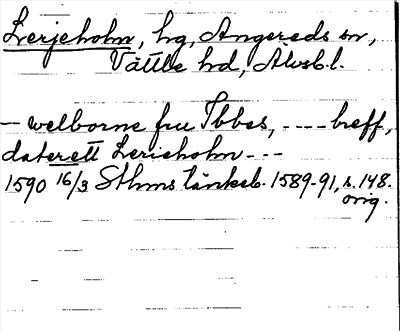 Lerjeholm, hg, Angereds sn,
Vättle hd, Älvsb. l.
– welborne fru Ibbes, ---- breff,
daterett Lerieholm ---
1590 16/3 Sthms tänkeb. 1589-91, s. 148.
orig.